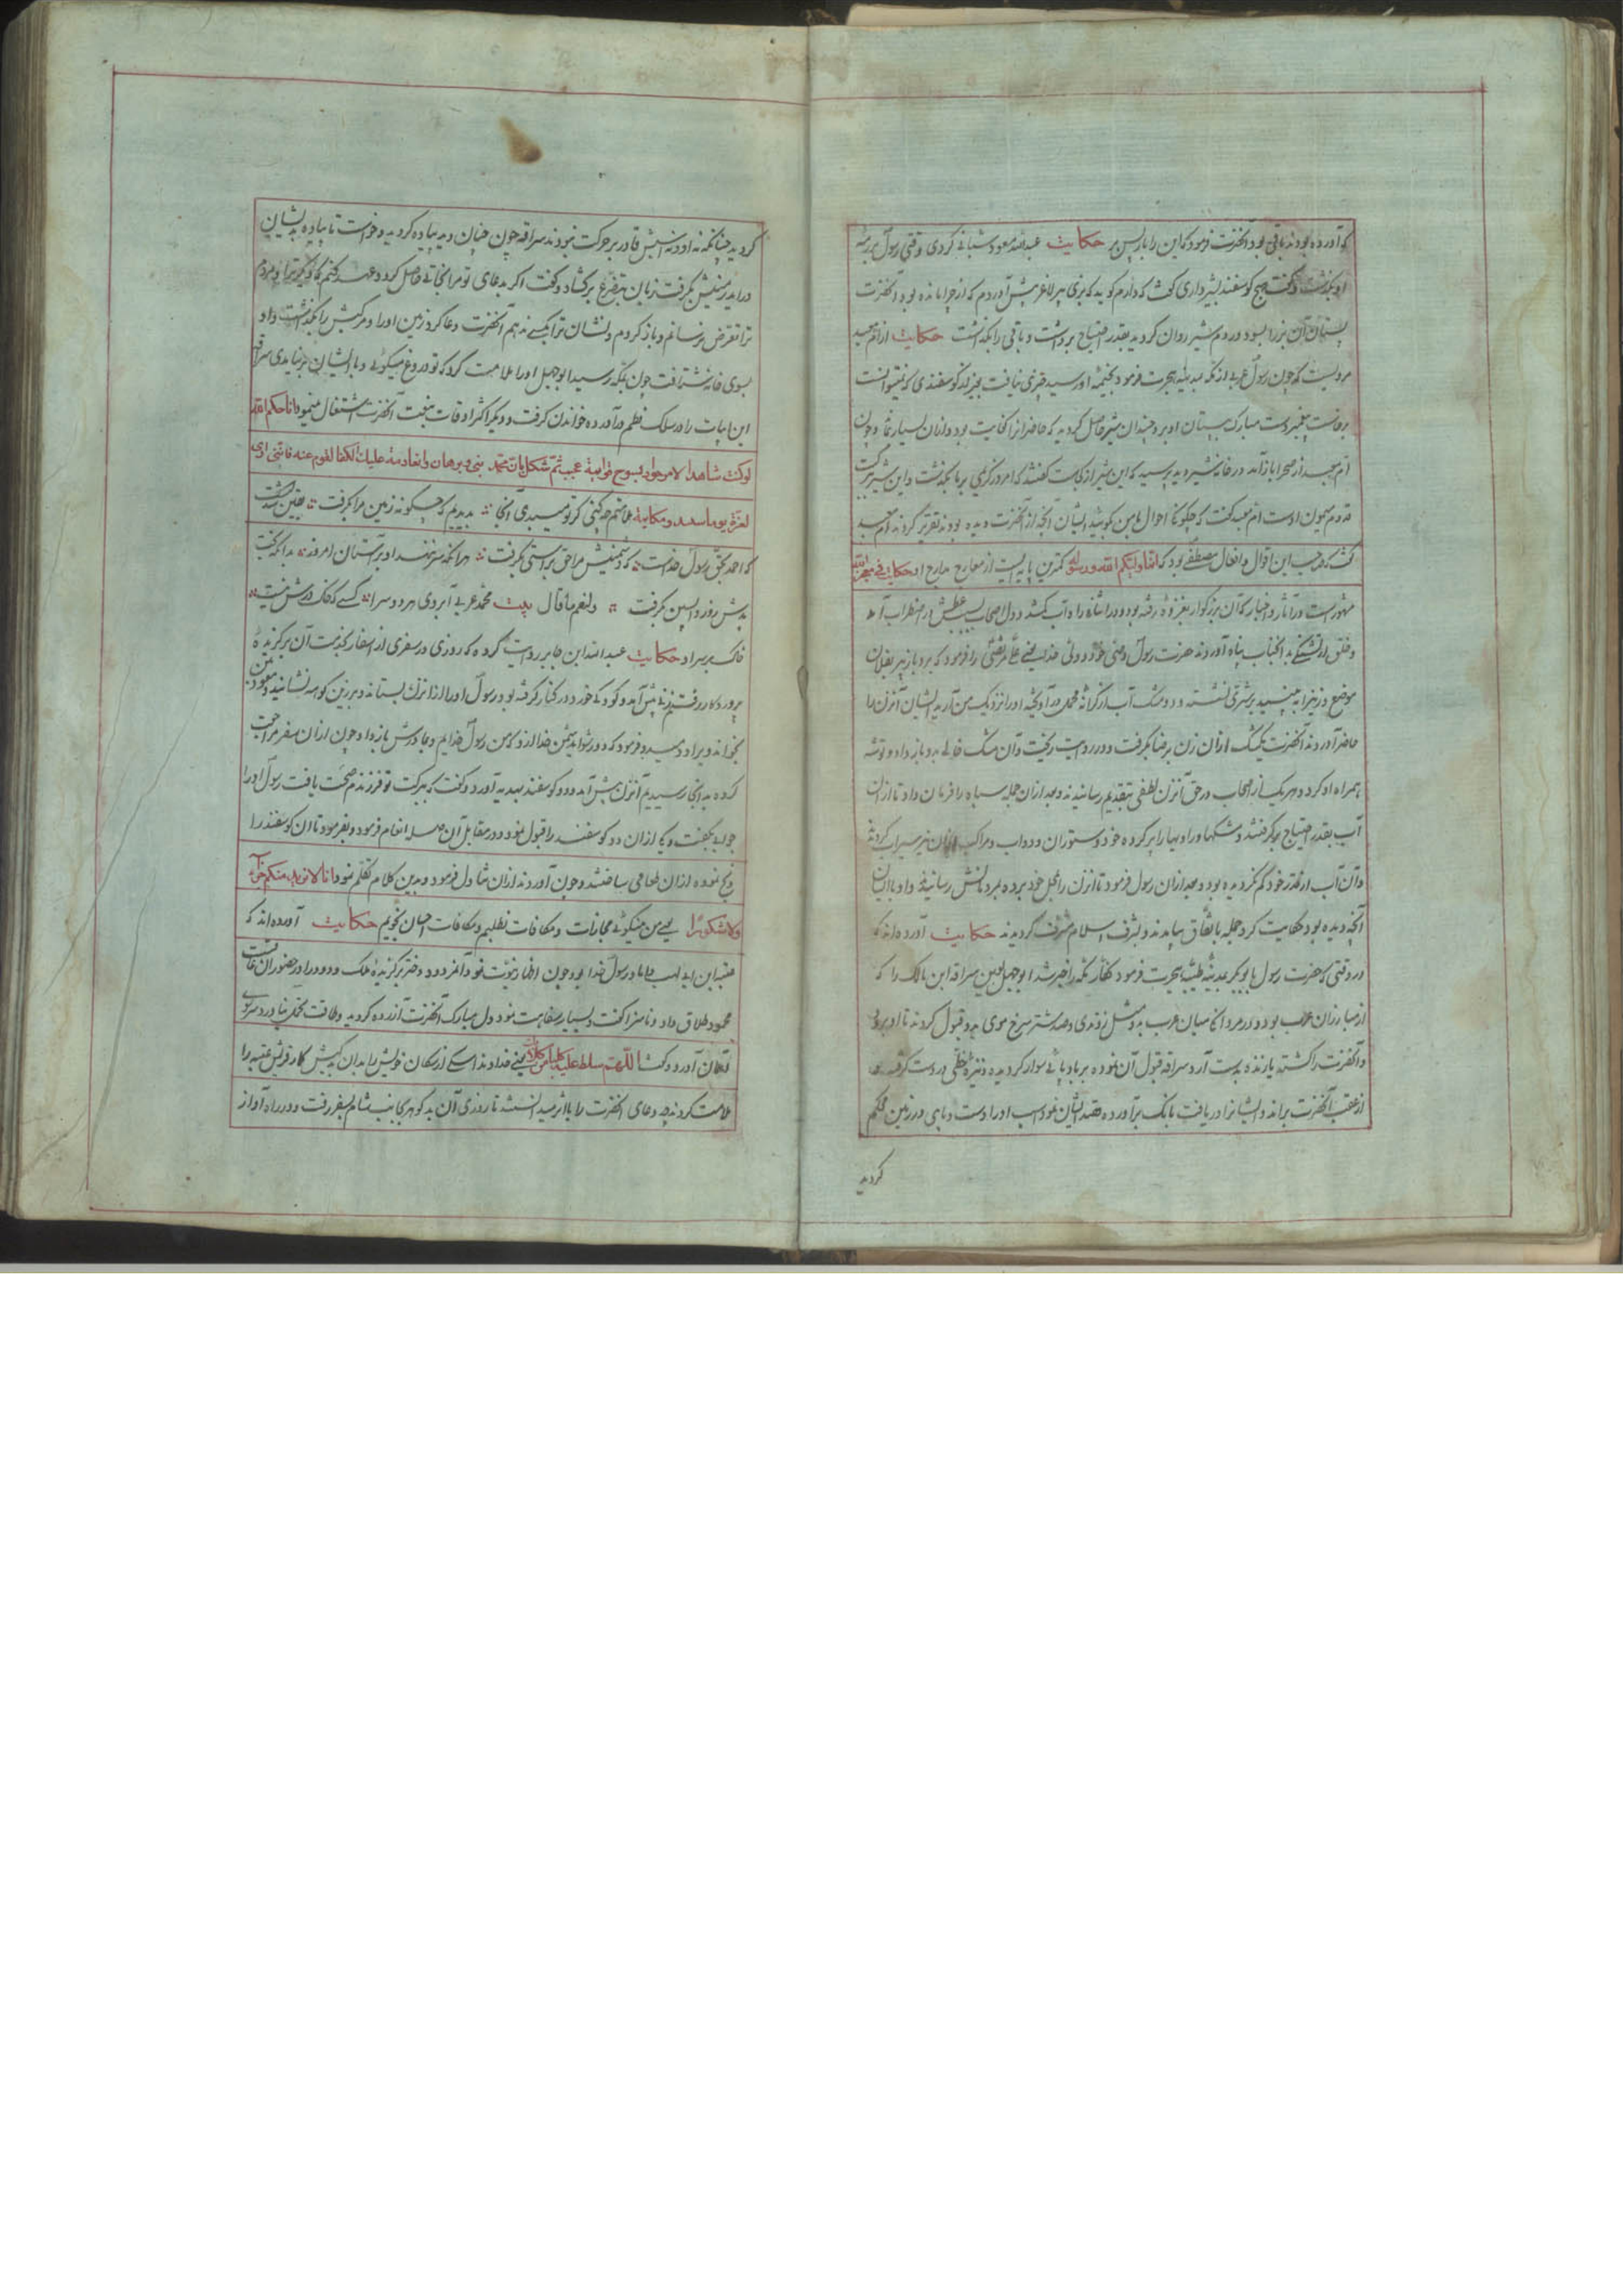 که آورده بودند باقی بود آنحضرت فرمود که این را باز پس بر حکایت عبدالله مسعود شبانی کردی وقتی رسول بر رمه
او بگذشت و گفت هیچ گوسفند شیرداری گفت که دارم گوید که بزی پیر لاغر پیش آوردم که از چرا مانده بود آنحضرت
پستان آن بز را بسود در دم شیر روان گردید بقدر احتیاج برداشت و باقی را بگذاشت حکایت از ام معبد
مرویست که چون رسول عربی از مکه بمدینه هجرت فرمود بخیمه او رسید چیزی نیافت بجز گوسفندی که نمیتوانست
برخاست پیغمبر دست مبارک به پستان او برد چندان شیر حاصل گردید که حاضر از انکفایت بود و از آن بسیار بماند چون
ام معبد از صحرا باز آمد در خانه شیر دید پرسید که این شیر از کجاست گفتند که امروز کریمی بر ما بگذشت و این شیر ببرکت
قدوم میمون اوست ام معبد گفت که چگونگی احوال با من بگویید ایشان آنچه از آنحضرت دیده بودند تقریر کردند ام معبد
گفت که موجب این اقوال و افعال مصطفی بود که انما ولیکم الله و رسوله کمترین پایه ایست از معارج مدارج او حکایت فی معجزاته
مشهور است در آثار و اخبار که آن بزرگوار بغزوه رفته بود و در اثنای راه آب کم شد و دل اصحاب بسبب عطش در اضطراب آمد
و خلق از تشنگی به آنجناب پناه آوردند حضرت رسول وصی خود و ولی خدا یعنی علی مرتضی را فرمود که برو با زبیر بفلان
موضع و زنی را ببینید بر شتری نشسته و دو مشک آب از کرانه محمل در آویخته او را نزدیک من آرید ایشان آنزن را
حاضر آوردند آنحضرت یک مشک از آن زن برضا بگرفت و در دست ریخت و آن مشک خالی بدو باز داد و توشه
همراه او کرد و هر یک از اصحاب در حق آنزن لطفی بتقدیم رسانیدند و بعد از آن جمله سپاه را فرمان داد تا از آن
آب بقدر احتیاج برگرفتند و مشکها و راویها را پر کرده خود و ستوران و دواب و مراکب از آن نیز سیراب کردند
و آن آب از قدر خود کم نگردیده بود و بعد از آن رسول فرمود تا آنزن را بمحل خود برده بمردمانش رسانیدند و او با ایشان
آنچه دیده بود حکایت کرد جمله باتفاق بیامدند و بشرف اسلام مشرف گردیدند حکایت آورده اند که
در وقتی که حضرت رسول با ابوبکر بمدینه طیبه هجرت فرمود کفار مکه را خبر شد ابوجهل لعین سراقه ابن مالک را که
از مبارزان عرب بود و در مردانگی میان عرب بدو مثل زدندی و صد شتر سرخ موی بدو قبول کردند تا او برود
و آنحضرت را کشته یا زنده بدست آرد سراقه قبول آن نموده بر بادپائی سوار گردیده و نیزه خطی در دست گرفته
از عقب آنحضرت براند و ایشانرا دریافت بانک برآورده قصد ایشان نمود اسب او را دست و پای در زمین محکم
گردید
گردید چنانکه نه او و نه اسبش قادر بر حرکت نبودند سراقه چون چنان دید پیاده گردید و خواست تا پیاده بدیشان
در آید زمینش بگرفت زبان بتضرع برگشاد و گفت اگر بدعای تو مرا نجاتی حاصل گردد عهد کنم که دیگر ترا و مردم
ترا تعرض نرسانم و باز گردم و نشان ترا بکسی ندهم آنحضرت دعا کرد زمین او را و مرکبش را بگذاشت و او
بسوی خانه شتافت چون بمکه رسید ابوجهل او را ملامت کرد که تو دروغ میگوئی و با ایشان بر نیامدی سراقه
این ابیات را در سلک نظم درآورده خواندن گرفت و دیگر اکثر اوقات بنعت آنحضرت اشتغال مینمود اباحکم
لو کنت شاهدا لامر جوادی یسوخ قوایمه عجبت ثم تشکک بان محمد نبی و برهان علیک الکف القوم عنه فاننی اری
ملامتم چکنی گر تو میبدی آنجا بدیدم که چگونه زمین مرا بگرفت یقین
که احمد بحق رسول خداست که دشمنیش مرا حق براستی بگرفت هرانکه سر ننهد او بر آستان امروز بدانکه بخت
بدش روز واپسین گرفت ولنعم ما قال بیت محمد عربی آبروی هر دو سرا کسی که خاک درش نیست
خاک بر سر او حکایت عبدالله ابن جابر روایت کرده که روزی در سفری از اسفار بخدمت آن برگزیدهٔ
پروردگار رفتیم زنی پیش آمد و کودکی خورد در کنار گرفته بود رسول او را از آنزن بستانده و بر زین کوهه نشانید و
بخواند و بر او دمید و فرمود که دور شو ای دشمن خدا از او که من رسول خدایم و مادرش باز داد و چون از آن سفر مراجعت
کرده به آنجا رسیدیم آنزن پیش آمد و دو گوسفند بهدیه آورد و گفت که ببرکت تو فرزندم صحت یافت رسول او را
جواب بگفت و یکی از آن دو گوسفند را قبول نمود و در مقابل آن صله انعام فرمود و بفرمود تا آن گوسفند را
ذبح نموده از آن طعامی ساختند و چون آوردند از آن تناول فرمود و بدین کلام تکلم نمود انا لا نرید منکم جزاء
ولا شکورا یعنی من میکوئی مجازات و مکافات نطلبیم و مکافات احسان نجویم حکایت آورده اند که
عتبه ابن ابی لهب داماد رسول خدا بود چون اظهار نبوت نمود آنمردود دختر برگزیدهٔ ملک ودود را در حضور آن عاقبت
محمود طلاق داد و ناسزا گفت و بسیار سفاهت نمود دل مبارک آنحضرت آزرده گردید و طاقت تحمل نیاورد سر بسوی
آسمان آورد و گفت اللهم سلط علیه کلبا من کلابک یعنی خداوندا سگی از سگان خویش را بدان بدکیش گمار قریش عتبه را
ملامت کردند که دعای آنحضرت را با اثر میدانستند تا روزی آن بد گوهر بجانب شام بسفر رفت و در راه آواز